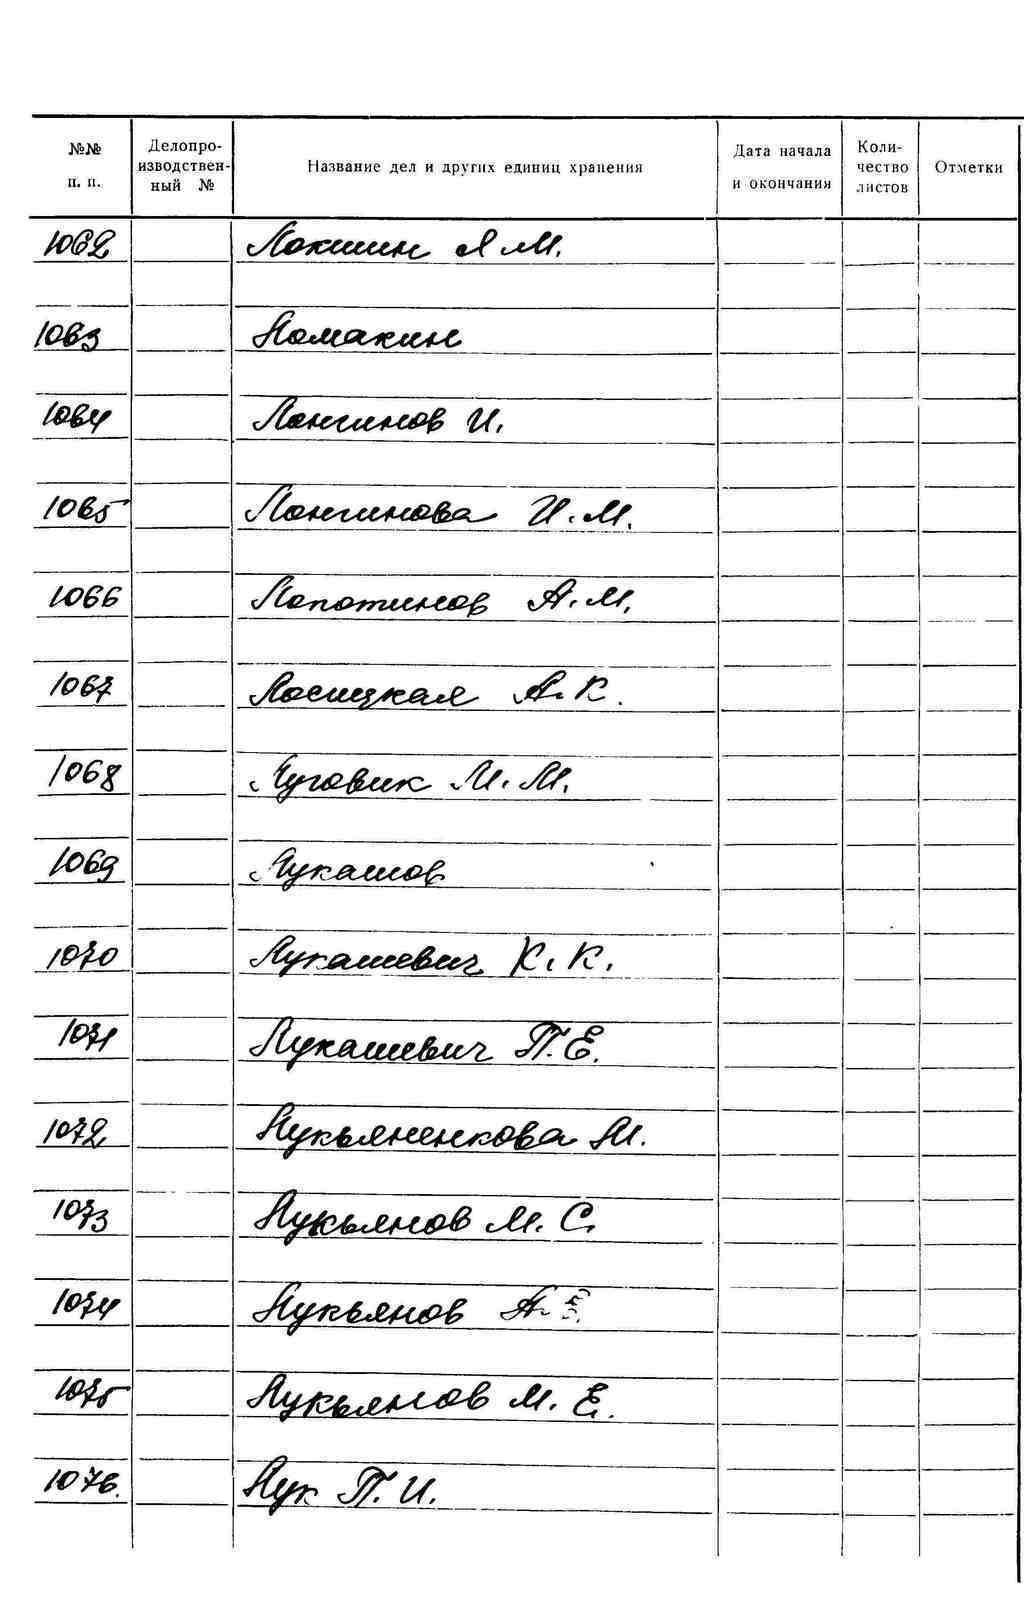 №№ п. п. Делопроизводственный № Название дел и других единиц хранения Дата начала и окончания Количество листов Отметки
1062 Локшин Я М.
1063 Ломакин
1064 Лонгинов И.
1065 Лонгинова И. М.
1066 Лопотинов А. М.
1067 Лосицкая А. К.
1068 Луговик М. М.
1069 Лукашов
1070 Лукашевич К. К.
1071 Лукашевич П. Е.
1072 Лукьяненкова М.
1073 Лукьянов М. С.
1074 Лукьянов А.
1075 Лукьянов М. Е.
1076. Лук П. И.